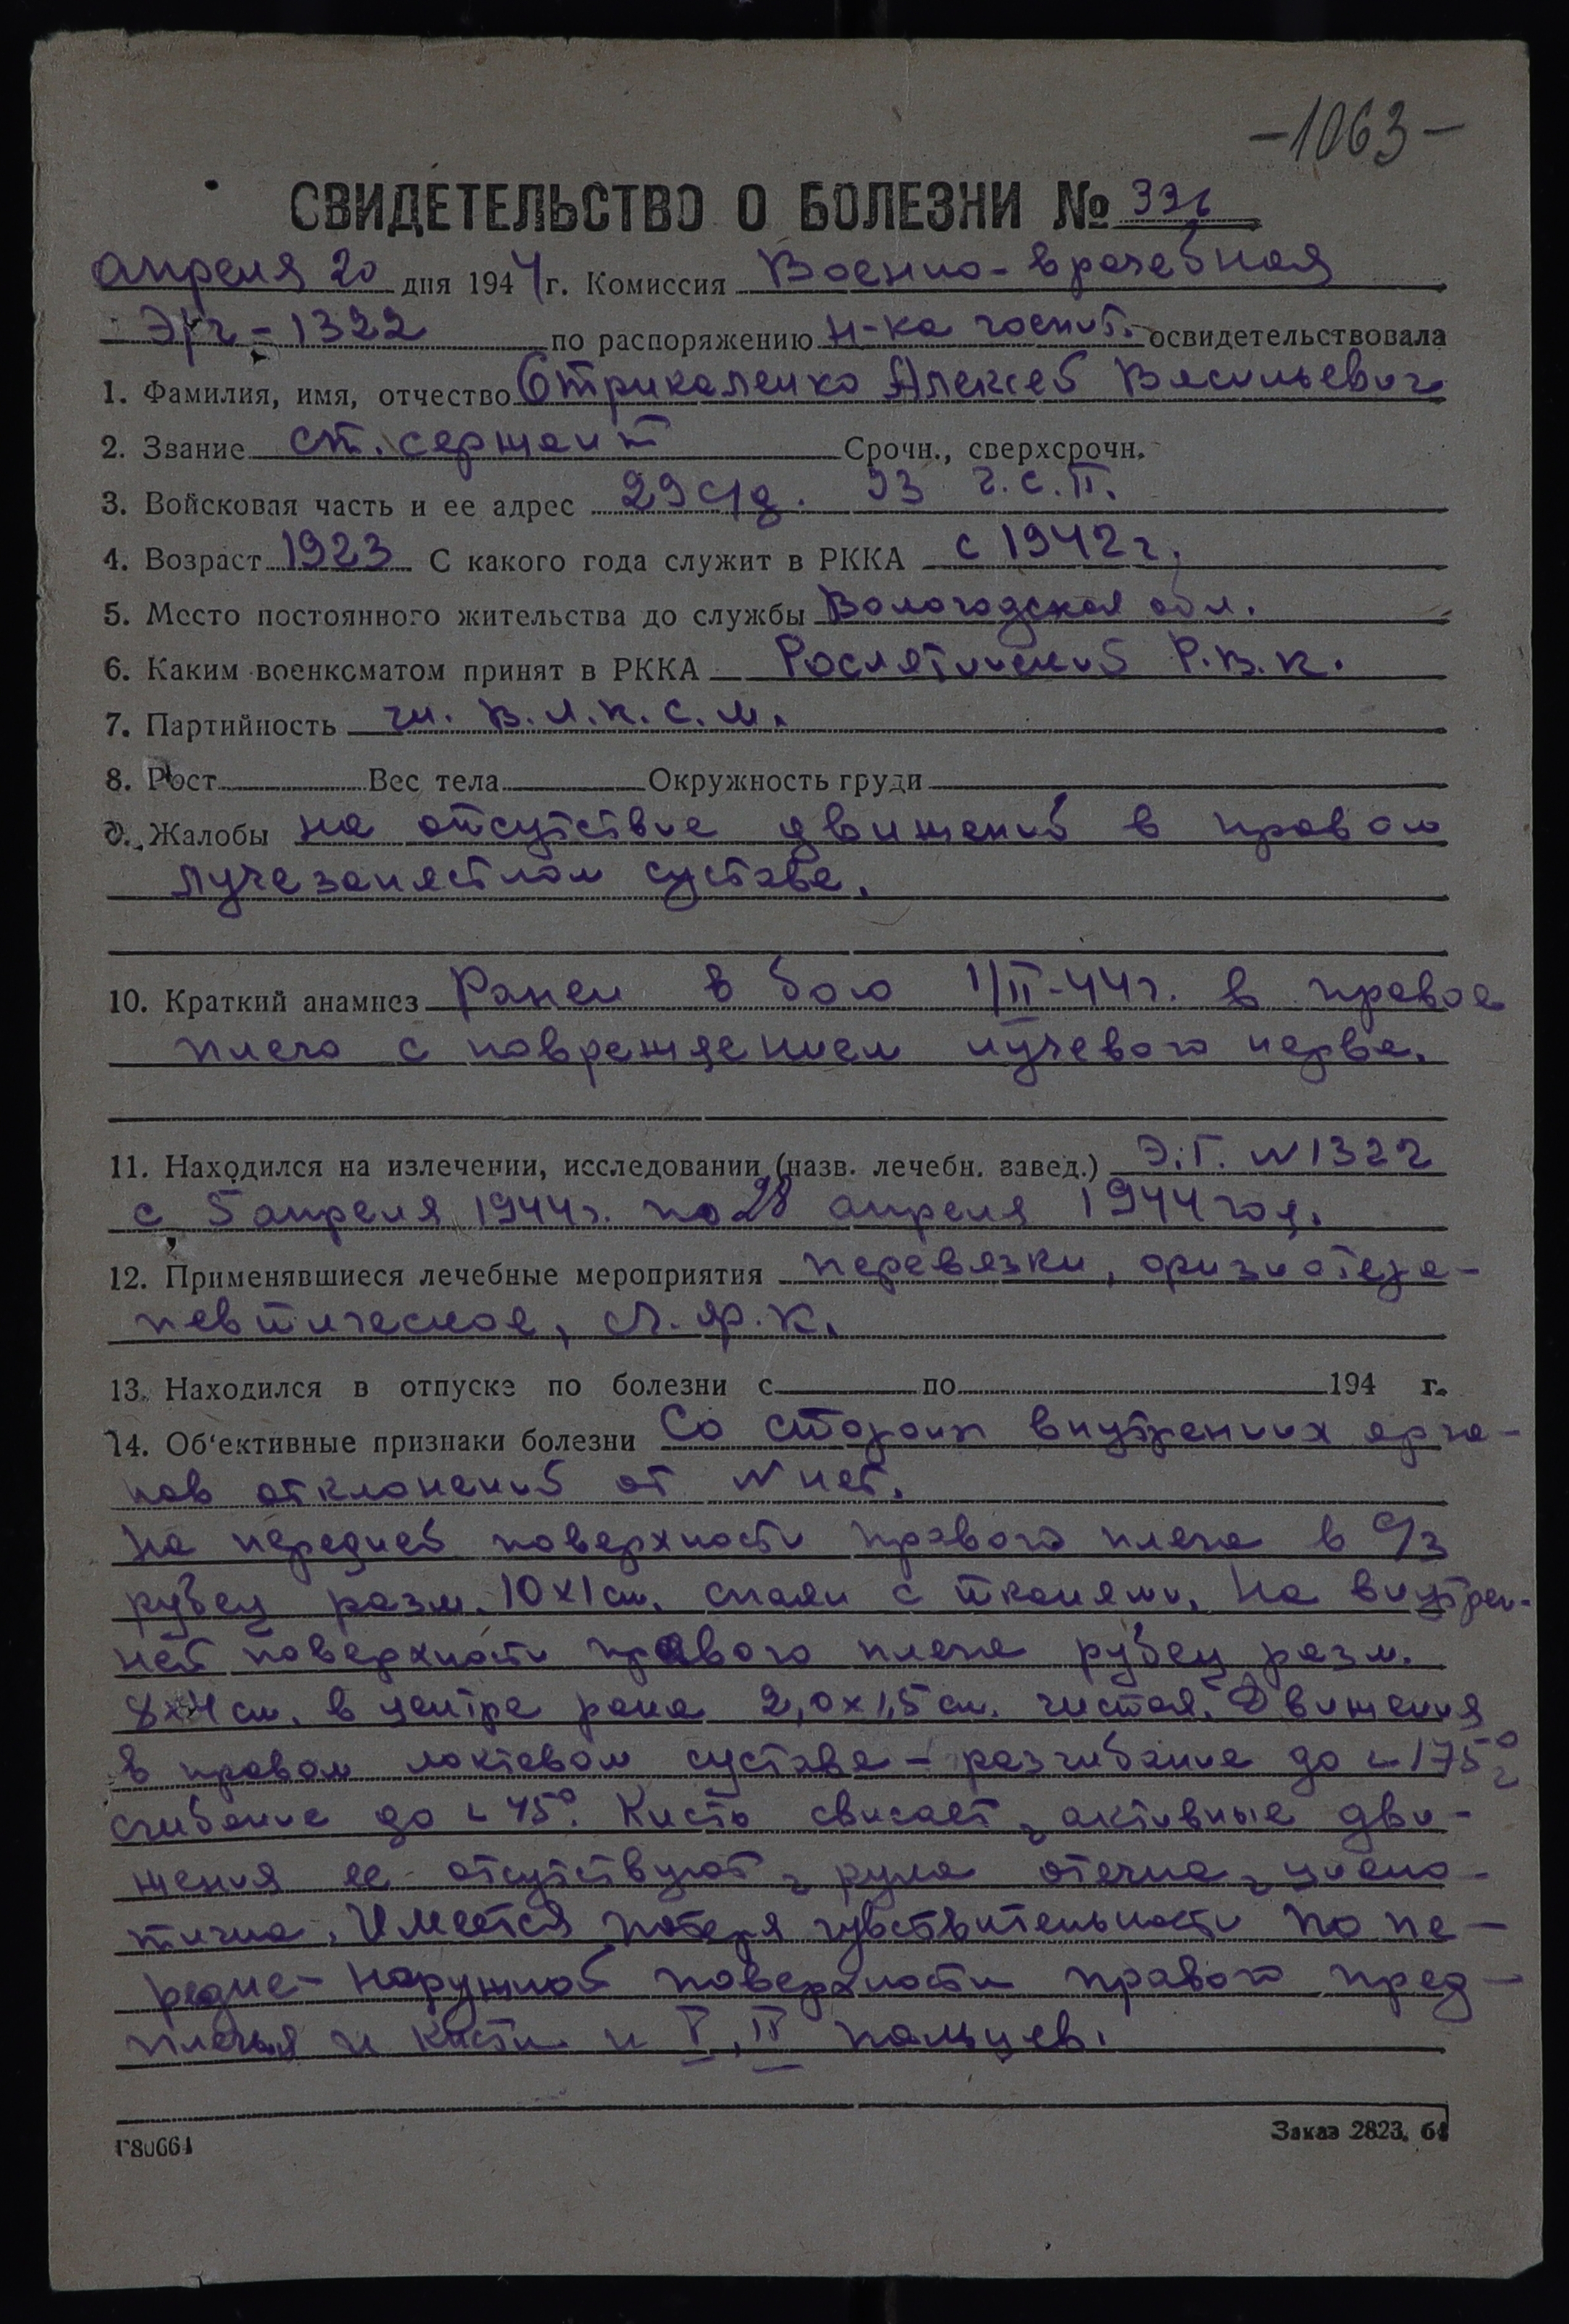 -1063-
СВИДЕТЕЛЬСТВО О БОЛЕЗНИ № 336
апреля 20 дня 1944 г. Комиссия Военно-врачебная
Э/г-1322 по распоряжению н-ка госпит. освидетельствовала
1. Фамилия, имя, отчество Стрикаленко Алексей Васильевич
2. Звание ст. сержант Срочн., сверхсрочн.
3. Войсковая часть и ее адрес 29 с/д. 93 г.с.п.
4. Возраст 1923 С какого года служит в РККА с 1942 г.
5. Место постоянного жительства до службы Вологодская обл.
6. Каким военкоматом принят в РККА Рослятинский Р.В.К.
7. Партийность чл. В.Л.К.С.М.
8. Рост Вес тела Окружность груди
9. Жалобы на отсутствие движений в правом
лучезапястном суставе.
10. Краткий анамнез Ранен в бою 1/II-44 г. в правое
плечо с повреждением лучевого нерва.
11. Находился на излечении, исследовании (назв. лечебн. завед.) Э.Г. N 1322
с 5 апреля 1944 г. по 28 апреля 1944 год.
12. Применявшиеся лечебные мероприятия перевязки, физиотера-
певтическое, Л.Ф.К.
13. Находился в отпуске по болезни с по 194 г.
14. Об'ективные признаки болезни Со сторон внутренних орга-
нов отклонений от N нет.
На передней поверхности правого плеча в с/з
рубец разм. 10х1 см. спаян с тканями. На внутрен-
ней поверхности правого плеча рубец разм.
8х4 см. в центре рана 2,0х1,5 см. чистая. Движения
в правом локтевом суставе - разгибание до ∟175°,
сгибание до ∟45°. Кисть свисает, активные дви-
жения ее отсутствуют, рука отечна, циано-
тична. Имеется потеря чувствительности по пе-
редне-наружной поверхности правого пред-
плечья и кисти и I, II пальцев.
Г80664
Заказ 2823. 64